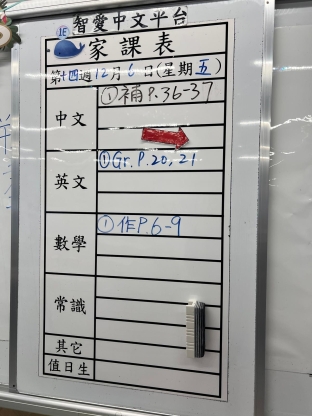 智愛中文平台
1E
家課表
第十四週12月6日(星期五)
中文
①補P.36-37
英文
①Gr.P.20,21
數學
①作P.6-9
常識
其它
值日生